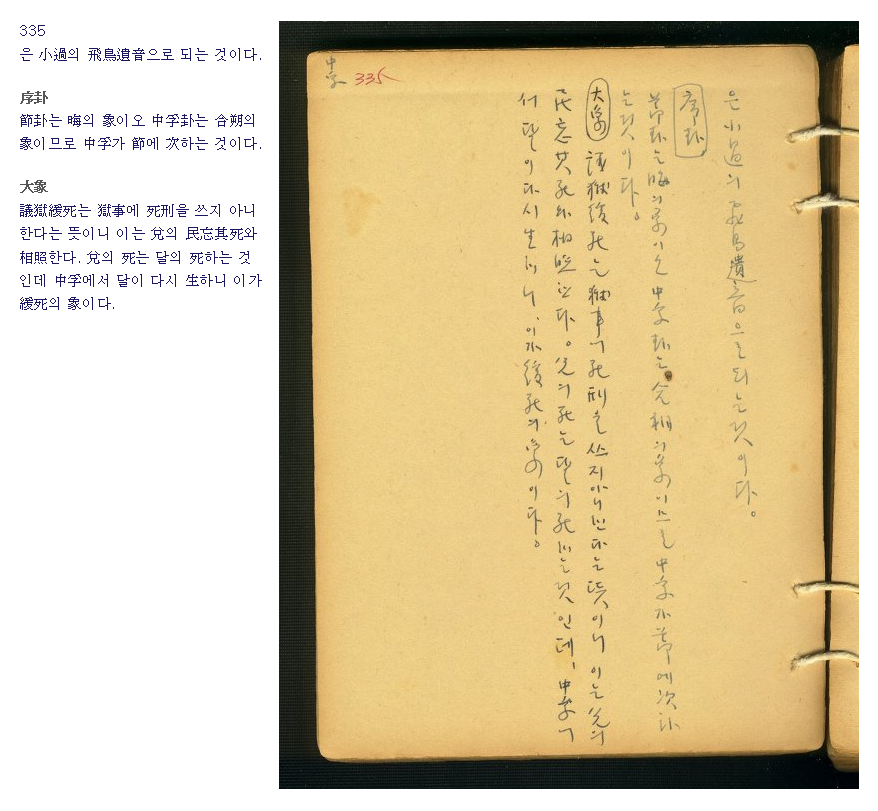 335
은 小過의 飛鳥遺音으로 되는 것이다.
序卦
節卦는 晦의 象이오 中孚卦는 合朔의
象이므로 中孚가 節에 次하는 것이다.
大象
議獄緩死는 獄事에 死刑을 쓰지 아니
한다는 뜻이니 이는 兌의 民忘其死와
相照한다. 兌의 死는 달의 死하는 것
인데 中孚에서 달이 다시 生하니 이가
緩死의 象이다.
中孚
335
은 小過의 飛鳥遺音으로 되는 것이다.
序卦
節卦는 晦의 象이오 中孚卦는 合朔의 象이므로 中孚가 節에 次하
는 것이다.
大象 議獄緩死는 獄事에 死刑을 쓰지 아니한다는 뜻이니 이는 兌의
民忘其死와 相照한다. 兌의 死는 달의 死하는 것인데, 中孚에
서 달이 다시 生하니, 이가 緩死의 象이다.